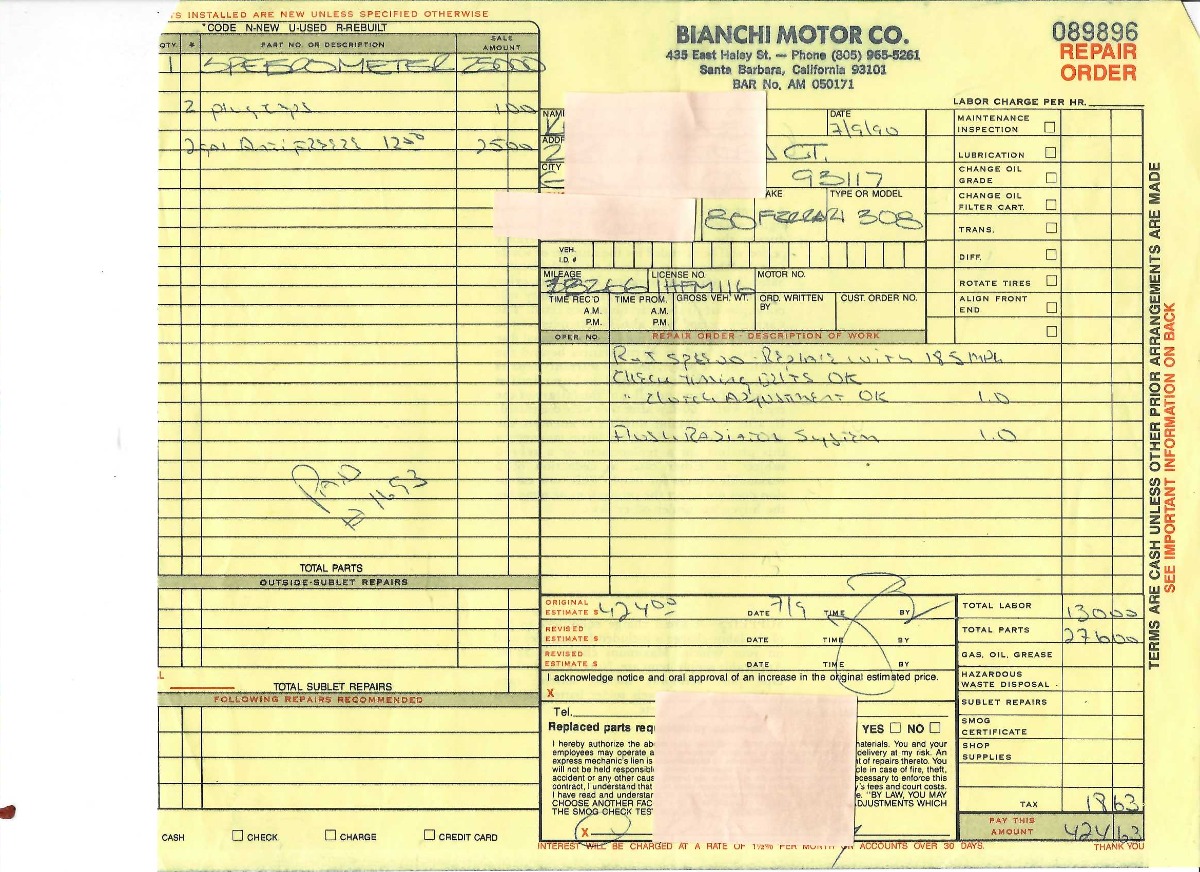 S INSTALLED ARE NEW UNLESS SPECIFIED OTHERWISE
*CODE N-NEW U-USED R-REBUILT
QTY. # PART NO. OR DESCRIPTION SALE AMOUNT
1 SPEEDOMETER 25000
2 plug caps 100
2 gal Antifreeze 1250 2500
PAID
# 1693
TOTAL PARTS
OUTSIDE-SUBLET REPAIRS
L
TOTAL SUBLET REPAIRS
FOLLOWING REPAIRS RECOMMENDED
CASH ☐ CHECK ☐ CHARGE ☐ CREDIT CARD
BIANCHI MOTOR CO.
435 East Haley St. — Phone (805) 965-5261
Santa Barbara, California 93101
BAR No. AM 050171
089896
REPAIR
ORDER
NAM
DATE
7/9/90
ADDR
2 CT.
CITY
93117
AKE TYPE OR MODEL
80 FERRARI 308
VEH. I.D. #
MILEAGE LICENSE NO. MOTOR NO.
38266 1HFM116
TIME REC'D A.M. P.M. TIME PROM. A.M. P.M. GROSS VEH. WT. ORD. WRITTEN BY CUST. ORDER NO.
OPER. NO. REPAIR ORDER - DESCRIPTION OF WORK
R & I SPEEDO - REPLACE with 185 MPH
CHECK Timing BELTS OK
" Clutch Adjustment OK 1.0
Flush Radiator System 1.0
LABOR CHARGE PER HR.
MAINTENANCE INSPECTION ☐
LUBRICATION ☐
CHANGE OIL GRADE ☐
CHANGE OIL FILTER CART. ☐
TRANS. ☐
DIFF. ☐
ROTATE TIRES ☐
ALIGN FRONT END ☐
☐
TERMS ARE CASH UNLESS OTHER PRIOR ARRANGEMENTS ARE MADE
SEE IMPORTANT INFORMATION ON BACK
ORIGINAL ESTIMATE $ 42400 DATE 7/9 TIME BY
REVISED ESTIMATE $ DATE TIME BY
REVISED ESTIMATE $ DATE TIME BY
I acknowledge notice and oral approval of an increase in the original estimated price.
X
Tel.
Replaced parts req YES ☐ NO ☐
I hereby authorize the ab aterials. You and your
employees may operate a delivery at my risk. An
express mechanic's lien is t of repairs thereto. You
will not be held responsibl cle in case of fire, theft,
accident or any other caus ecessary to enforce this
contract, I understand that y's fees and court costs.
I have read and understan e. "BY LAW, YOU MAY
CHOOSE ANOTHER FAC DJUSTMENTS WHICH
THE SMOG CHECK TES
X
TOTAL LABOR 13000
TOTAL PARTS 27600
GAS, OIL, GREASE
HAZARDOUS WASTE DISPOSAL
SUBLET REPAIRS
SMOG CERTIFICATE
SHOP SUPPLIES
TAX 1863
PAY THIS AMOUNT 424 63
INTEREST WILL BE CHARGED AT A RATE OF 1½% PER MONTH ON ACCOUNTS OVER 30 DAYS. THANK YOU